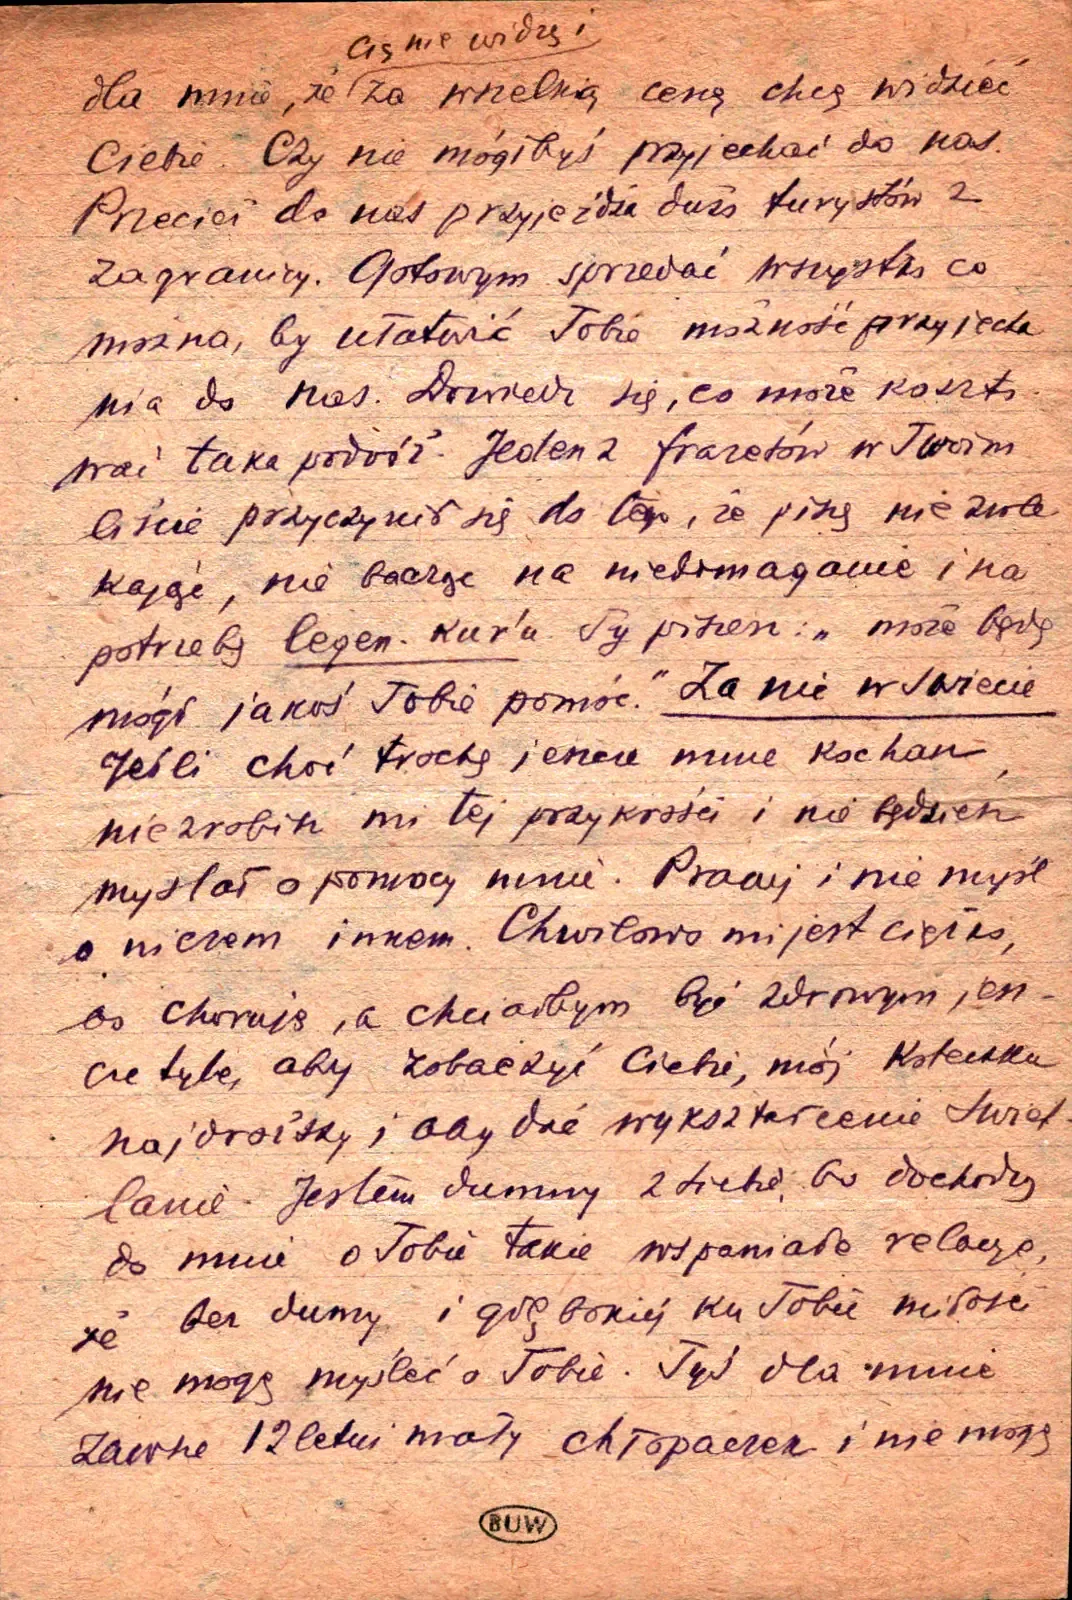 Cię nie widzę i
dla mnie, że za wszelką cenę chcę widzieć
Ciebie. Czy nie mógłbyś przyjechać do nas.
Przecież do nas przyjeżdża dużo turystów z
zagranicy. Gotowym sprzedać wszystko co
można, by ułatwić Tobie możność przyjecha
nia do nas. Dowiedz się, co może koszto-
wać taka podróż. Jeden z frazetów w Twoim
liście przyczynił się do tego, że piszę nie zwle
kając, nie bacząc na niedomaganie i na
potrzebę legen. kur'u. Ty piszesz: „może będę
mógł jakoś Tobie pomóc." Za nic w świecie
Jeśli choć trochę jeszcze mnie kochasz,
nie zrobisz mi tej przykrości i nie będziesz
myślał o pomocy mnie. Pracuj i nie myśl
o niczem innem. Chwilowo mi jest ciężko,
bo choruję, a chciałbym być zdrowym jesz-
cze tyle, aby zobaczyć Ciebie, mój Koteczku
najdroższy i aby dać wykształcenie Swiet-
lanie. Jestem dumny z Ciebie, bo dochodzą
do mnie o Tobie takie wspaniałe relacje,
że bez dumy i głębokiej ku Tobie miłości
nie mogę myśleć o Tobie. Tyś dla mnie
zawsze 12 letni mały chłopaczek i nie mogę
BUW